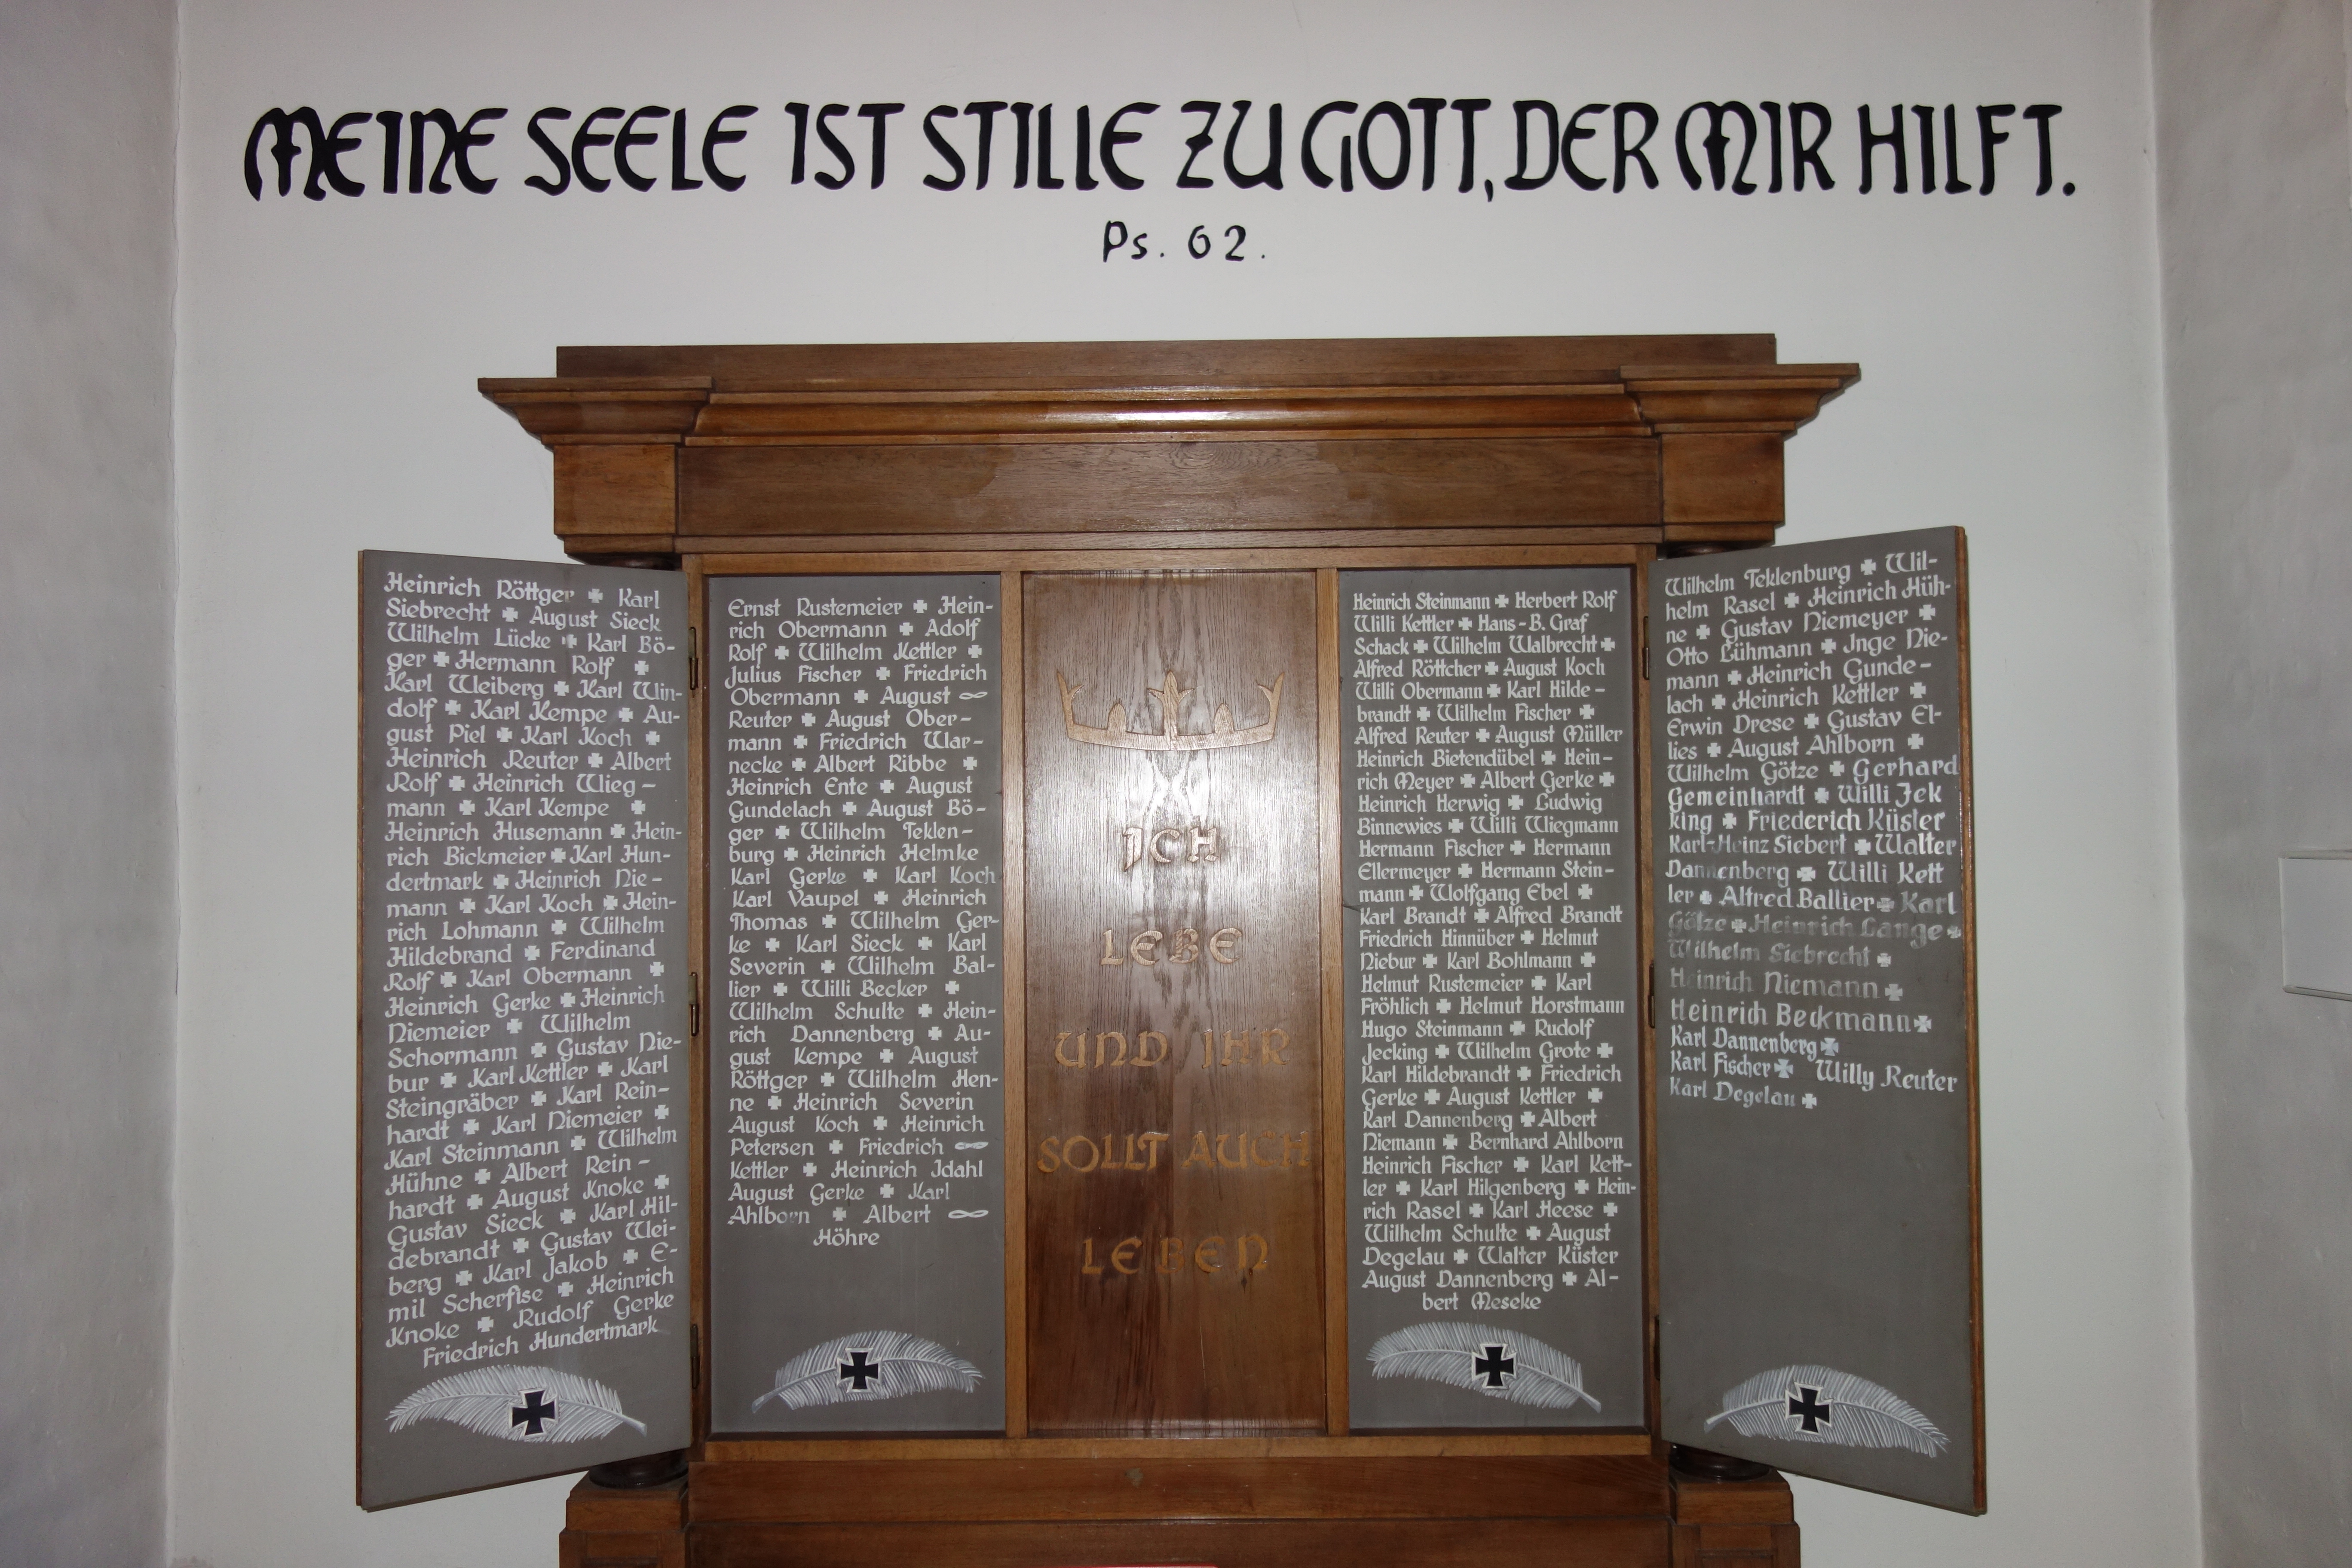 MEINE SEELE IST STILLE ZU GOTT, DER MIR HILFT.
Ps. 62.
Heinrich Röttger ✠ Karl
Siebrecht ✠ August Sieck
Wilhelm Lücke ✠ Karl Bö-
ger ✠ Hermann Rolf ✠
Karl Weiberg ✠ Karl Win-
dolf ✠ Karl Kempe ✠ Au-
gust Piel ✠ Karl Koch ✠
Heinrich Reuter ✠ Albert
Rolf ✠ Heinrich Wieg-
mann ✠ Karl Kempe ✠
Heinrich Husemann ✠ Hein-
rich Bickmeier ✠ Karl Hun-
dertmark ✠ Heinrich Nie-
mann ✠ Karl Koch ✠ Hein-
rich Lohmann ✠ Wilhelm
Hildebrand ✠ Ferdinand
Rolf ✠ Karl Obermann ✠
Heinrich Gerke ✠ Heinrich
Niemeier ✠ Wilhelm
Schormann ✠ Gustav Nie-
bur ✠ Karl Kettler ✠ Karl
Steingräber ✠ Karl Rein-
hardt ✠ Karl Niemeier ✠
Karl Steinmann ✠ Wilhelm
Hühne ✠ Albert Rein-
hardt ✠ August Knoke ✠
Gustav Sieck ✠ Karl Hil-
debrandt ✠ Gustav Wei-
berg ✠ Karl Jakob ✠ E-
mil Scherfise ✠ Heinrich
Knoke ✠ Rudolf Gerke
Friedrich Hundertmark
Ernst Rustemeier ✠ Hein-
rich Obermann ✠ Adolf
Rolf ✠ Wilhelm Kettler ✠
Julius Fischer ✠ Friedrich
Obermann ✠ August
Reuter ✠ August Ober-
mann ✠ Friedrich War-
necke ✠ Albert Ribbe ✠
Heinrich Ente ✠ August
Gundelach ✠ August Bö-
ger ✠ Wilhelm Teklen-
burg ✠ Heinrich Helmke
Karl Gerke ✠ Karl Koch
Karl Vaupel ✠ Heinrich
Thomas ✠ Wilhelm Ger-
ke ✠ Karl Sieck ✠ Karl
Severin ✠ Wilhelm Bal-
lier ✠ Willi Becker ✠
Wilhelm Schulte ✠ Hein-
rich Dannenberg ✠ Au-
gust Kempe ✠ August
Röttger ✠ Wilhelm Hen-
ne ✠ Heinrich Severin
August Koch ✠ Heinrich
Petersen ✠ Friedrich
Kettler ✠ Heinrich Idahl
August Gerke ✠ Karl
Ahlborn ✠ Albert
Höhre
ICH
LEBE
UND IHR
SOLLT AUCH
LEBEN
Heinrich Steinmann ✠ Herbert Rolf
Willi Kettler ✠ Hans-B. Graf
Schack ✠ Wilhelm Walbrecht ✠
Alfred Röttcher ✠ August Koch
Willi Obermann ✠ Karl Hilde-
brandt ✠ Wilhelm Fischer ✠
Alfred Reuter ✠ August Müller
Heinrich Bietendübel ✠ Hein-
rich Meyer ✠ Albert Gerke ✠
Heinrich Herwig ✠ Ludwig
Binnewies ✠ Willi Wiegmann
Hermann Fischer ✠ Hermann
Ellermeyer ✠ Hermann Stein-
mann ✠ Wolfgang Ebel ✠
Karl Brandt ✠ Alfred Brandt
Friedrich Hinnüber ✠ Helmut
Niebur ✠ Karl Bohlmann ✠
Helmut Rustemeier ✠ Karl
Fröhlich ✠ Helmut Horstmann
Hugo Steinmann ✠ Rudolf
Jecking ✠ Wilhelm Grote ✠
Karl Hildebrandt ✠ Friedrich
Gerke ✠ August Kettler ✠
Karl Dannenberg ✠ Albert
Niemann ✠ Bernhard Ahlborn
Heinrich Fischer ✠ Karl Kett-
ler ✠ Karl Hilgenberg ✠ Hein-
rich Rasel ✠ Karl Heese ✠
Wilhelm Schulte ✠ August
Degelau ✠ Walter Küster
August Dannenberg ✠ Al-
bert Meseke
Wilhelm Teklenburg ✠ Wil-
helm Rasel ✠ Heinrich Hüh-
ne ✠ Gustav Niemeyer ✠
Otto Lühmann ✠ Inge Nie-
mann ✠ Heinrich Gunde-
lach ✠ Heinrich Kettler ✠
Erwin Drese ✠ Gustav El-
lies ✠ August Ahlborn ✠
Wilhelm Götze ✠ Gerhard
Gemeinhardt ✠ Willi Jek
king ✠ Friederich Küsler
Karl-Heinz Siebert ✠ Walter
Dannenberg ✠ Willi Kett
ler ✠ Alfred Ballier ✠ Karl
Götze ✠ Heinrich Lange ✠
Wilhelm Siebrecht ✠
Heinrich Niemann ✠
Heinrich Beckmann ✠
Karl Dannenberg ✠
Karl Fischer ✠ Willy Reuter
Karl Degelau ✠